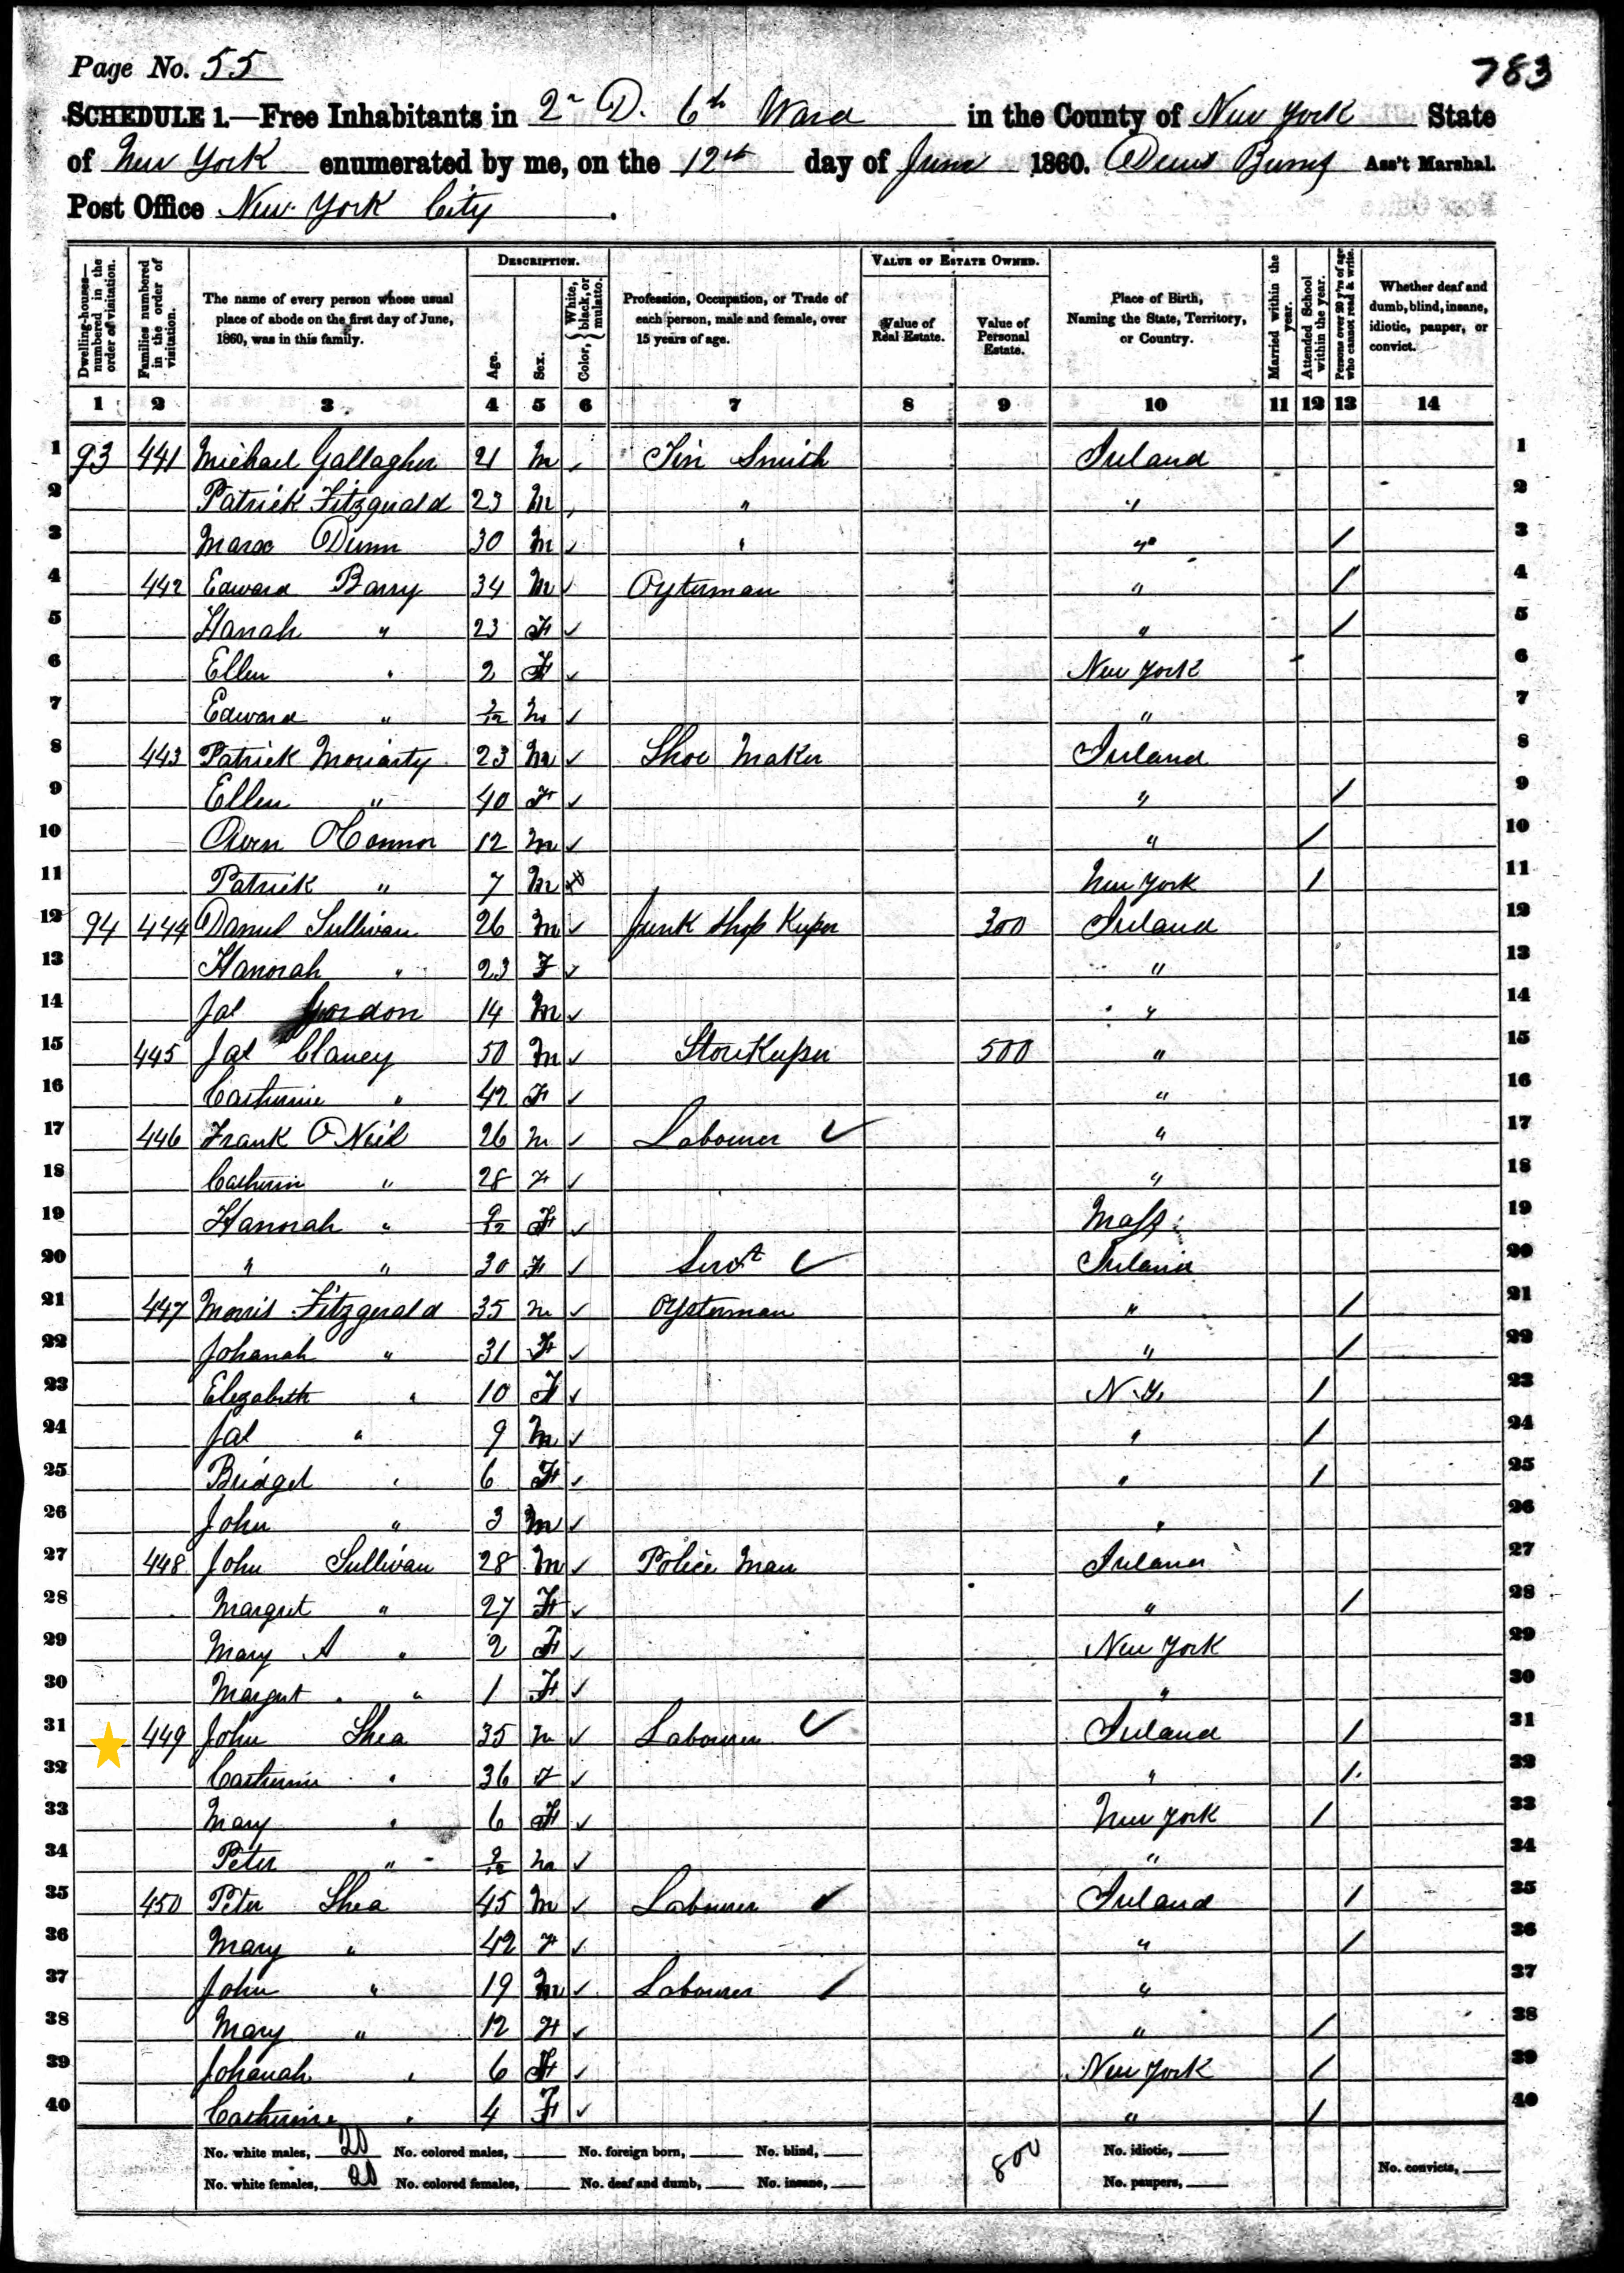 Page No. 55
783
SCHEDULE 1.—Free Inhabitants in 2n D. 6th Ward in the County of New York State
of New York enumerated by me, on the 12th day of June 1860. Ass't Marshal.
Post Office New York City.
Dwelling-houses—numbered in the order of visitation.
Families numbered in the order of visitation.
The name of every person whose usual place of abode on the first day of June, 1860, was in this family.
DESCRIPTION.
Age.
Sex.
Color, { White, black, or mulatto.
Profession, Occupation, or Trade of each person, male and female, over 15 years of age.
VALUE OF ESTATE OWNED.
Value of Real Estate.
Value of Personal Estate.
Place of Birth, Naming the State, Territory, or Country.
Married within the year.
Attended School within the year.
Persons over 20 y'rs of age who cannot read & write.
Whether deaf and dumb, blind, insane, idiotic, pauper, or convict.
1 2 3 4 5 6 7 8 9 10 11 12 13 14
1 93 441 Michael Gallagher 21 M Tin Smith Ireland 1
2 Patrick Fitzgerald 23 M " " 2
3 Dunn 30 M ✓ " " / 3
4 442 Edward Barry 34 M ✓ Oyterman " / 4
5 Hanah " 23 F ✓ " / 5
6 Ellen " 2 F ✓ New York 6
7 Edward " M ✓ " 7
8 443 Patrick Moriarty 23 M ✓ Shoe Maker Ireland 8
9 Ellen " 40 F ✓ " / 9
10 Owen OConnor 12 M ✓ " / 10
11 Patrick " 7 M New York / 11
12 94 444 Daniel Sullivan 26 M ✓ Junk Shop Keeper 300 Ireland 12
13 Hanorah " 23 F ✓ " 13
14 Jas Gordon 14 M ✓ " 14
15 445 Jas Clancy 50 M ✓ StoreKeeper 500 " 15
16 Catherine " 42 F ✓ " 16
17 446 Frank O Neil 26 M ✓ Labourer ✓ " 17
18 Catherin " 28 F ✓ " 18
19 Hanorah " 9/12 F ✓ Mass: 19
20 " " 30 F ✓ Servt ✓ Ireland 20
21 447 Morris Fitzgerald 35 M ✓ Oysterman " / 21
22 Johanah " 31 F ✓ " / 22
23 Elezabeth " 10 F ✓ N.Y. / 23
24 Jas " 9 M ✓ " / 24
25 Bridget " 6 F ✓ " / 25
26 John " 3 M ✓ " 26
27 448 John Sullivan 28 M ✓ Police Man Ireland 27
28 Margret " 27 F ✓ " / 28
29 Mary A " 2 F ✓ New York 29
30 Margret " 1 F ✓ " 30
31 449 John Shea 35 M ✓ Labourer ✓ Ireland / 31
32 Catherine " 36 F ✓ " / 32
33 Mary " 6 F ✓ New York / 33
34 Peter " M ✓ " 34
35 450 Peter Shea 45 M ✓ Labourer ✓ Ireland / 35
36 Mary " 42 F ✓ " / 36
37 John " 19 M ✓ Labourer / " 37
38 Mary " 12 F ✓ " / 38
39 Johanah " 6 F ✓ New York / 39
40 Catherine " 4 F ✓ " / 40
No. white males, 20 No. colored males, No. foreign born, No. blind, 800 No. idiotic,
No. white females, 20 No. colored females, No. deaf and dumb, No. insane, No. paupers, No. convicts,